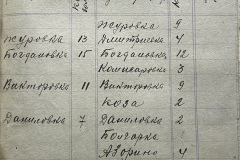 Журовка 9
Журовка 13 Дмитриевка 4
Богдановка 15 Богдановка 12
Комисаровка 3
Викторовка 11 Викторовка 9
Коза 2
Даниловка 7 Даниловка 2
Болгарка
Аворино 4